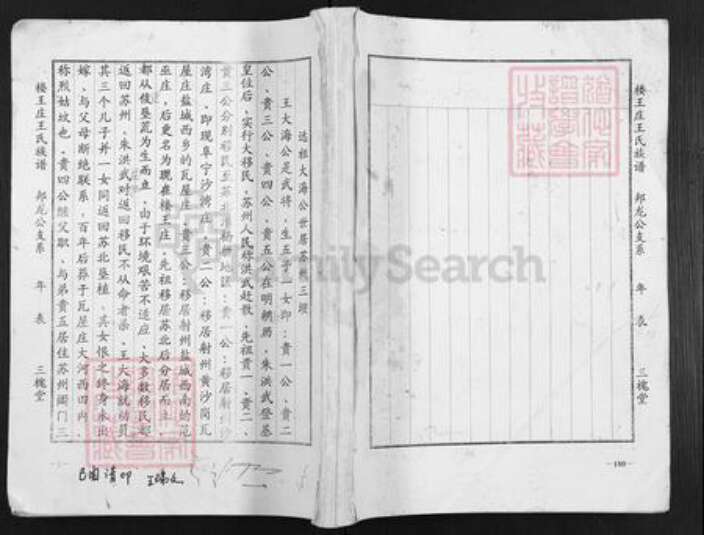 楼王庄王氏族谱 邦龙公支系 年表 三槐堂
—180—
远祖大海公世居苏州三垻
王大海公是武将，生五子一女即：贵一公、贵二
公、贵三公、贵四公、贵五公在明朝易，朱洪武登基
皇位后，实行大移民，苏州人民称洪武赶散，先祖贵一、贵二、
贵三公分别移民至苏北
湾庄，即现阜宁沙湾庄，贵二公：移居射州黄沙岗瓦
屋庄盐城西乡的瓦屋庄，贵三公：移居射州盐城西南的范
巫庄，后更名为现在楼王庄，先祖移居苏北后分居而立，
都从伎垦荒为生而立，由于环境艰苦不适应，大多数移民都
返回苏州，朱洪武对返回移民不从命者杀，王大海就动员
其三个儿子并一女同返回苏北垦植，其女恨之终身未出
嫁，与父母断绝联系，百年后葬于瓦屋庄大河西田内，
称烈姑坟也，贵四公继父职，与弟贵五居住苏州阊门三
楼王庄王氏族谱 邦龙公支系 年表 三槐堂
FamilySearch